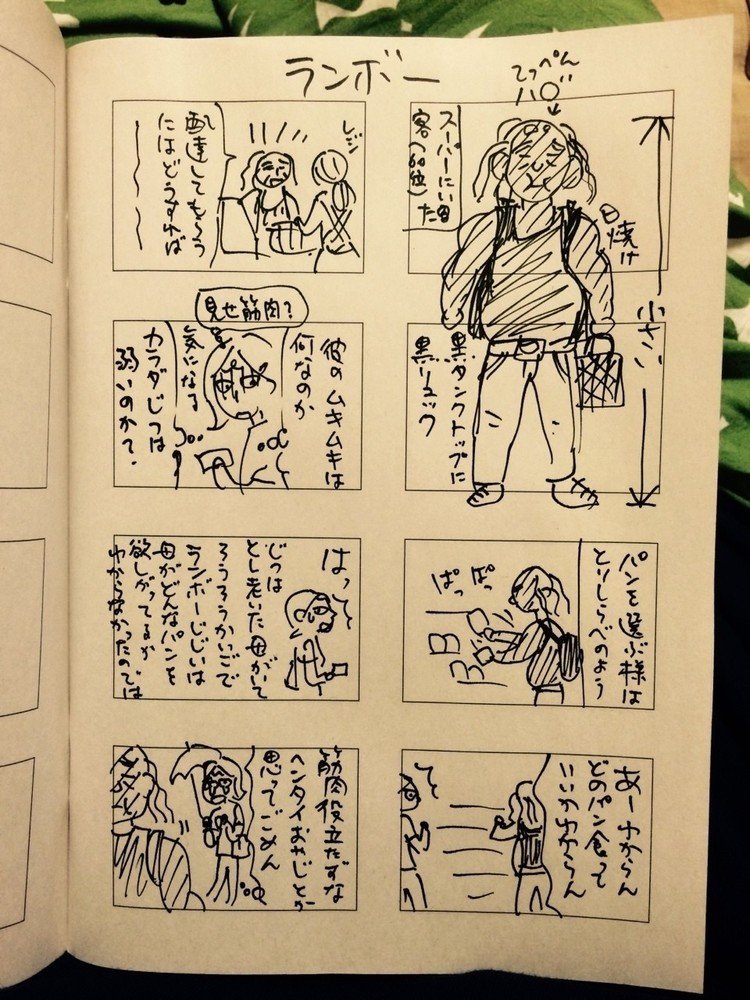 ランボー
てっぺん
ハゲ
スーパーにいた
客(60位)
日焼け
小さい
黒タンクトップに
黒リュック
パンを選ぶ様は
とりしらべのよう
ぱっ
ぱっ
あーわからん
どのパン食って
いいかわからん
レジ
配達してもらう
にはどうすれば
見せ筋肉?
彼のムキムキは
何なのか
気になる
カラダじつは
弱いのか?
はっ
じつは
とし老いた母がいて
ろうろうかいごで
ランボーじじいは
母がどんなパンを
欲しがってるか
わからなかったのでは
筋肉役立たずな
ヘンタイおやじとか
思ってごめん